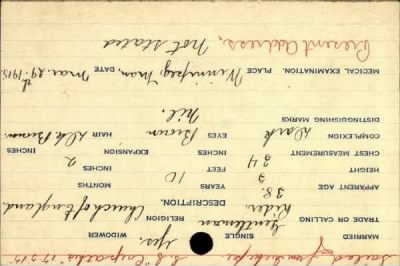 Sailed from S.S. "Carpathia" 17.9.15
MARRIED SINGLE yes. WIDOWER
TRADE OR CALLING Gentleman Rider RELIGION Church of England
DESCRIPTION.
APPARENT AGE 38. YEARS 10 MONTHS
HEIGHT 5 FEET 2 INCHES
CHEST MEASUREMENT 34 INCHES EXPANSION INCHES
COMPLEXION Dark EYES Brown HAIR Dk Brown.
DISTINGUISHING MARKS Nil.
MEDICAL EXAMINATION. PLACE Winnipeg, Man, DATE Mar. 29th 1915
Present Address, Not stated